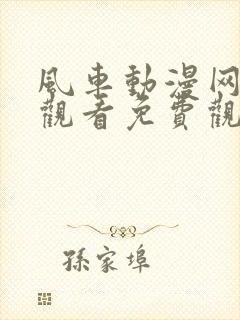 風車動漫网
觀看免費觀
孫家埠